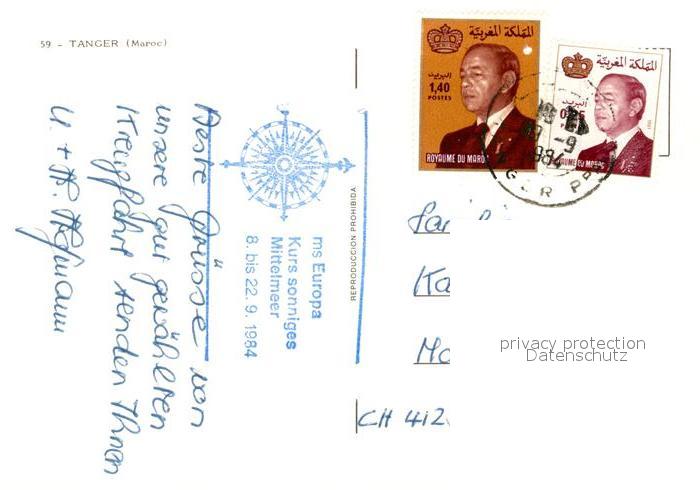 59 - TANGER (Maroc)
Beste Grüsse von
unsere gut gewählten
Kreuzfahrt senden Ihnen
U. + H. Hofmann
ms Europa
Kurs sonniges
Mittelmeer
8. bis 22. 9. 1984
REPRODUCCION PROHIBIDA
المملكة المغربية
البريد
1,40
POSTES
ROYAUME DU MAROC
المملكة المغربية
البريد
ROYAUME DU MAROC
-9
1984
Fa
Ka
Mo
CH 412
privacy protection
Datenschutz